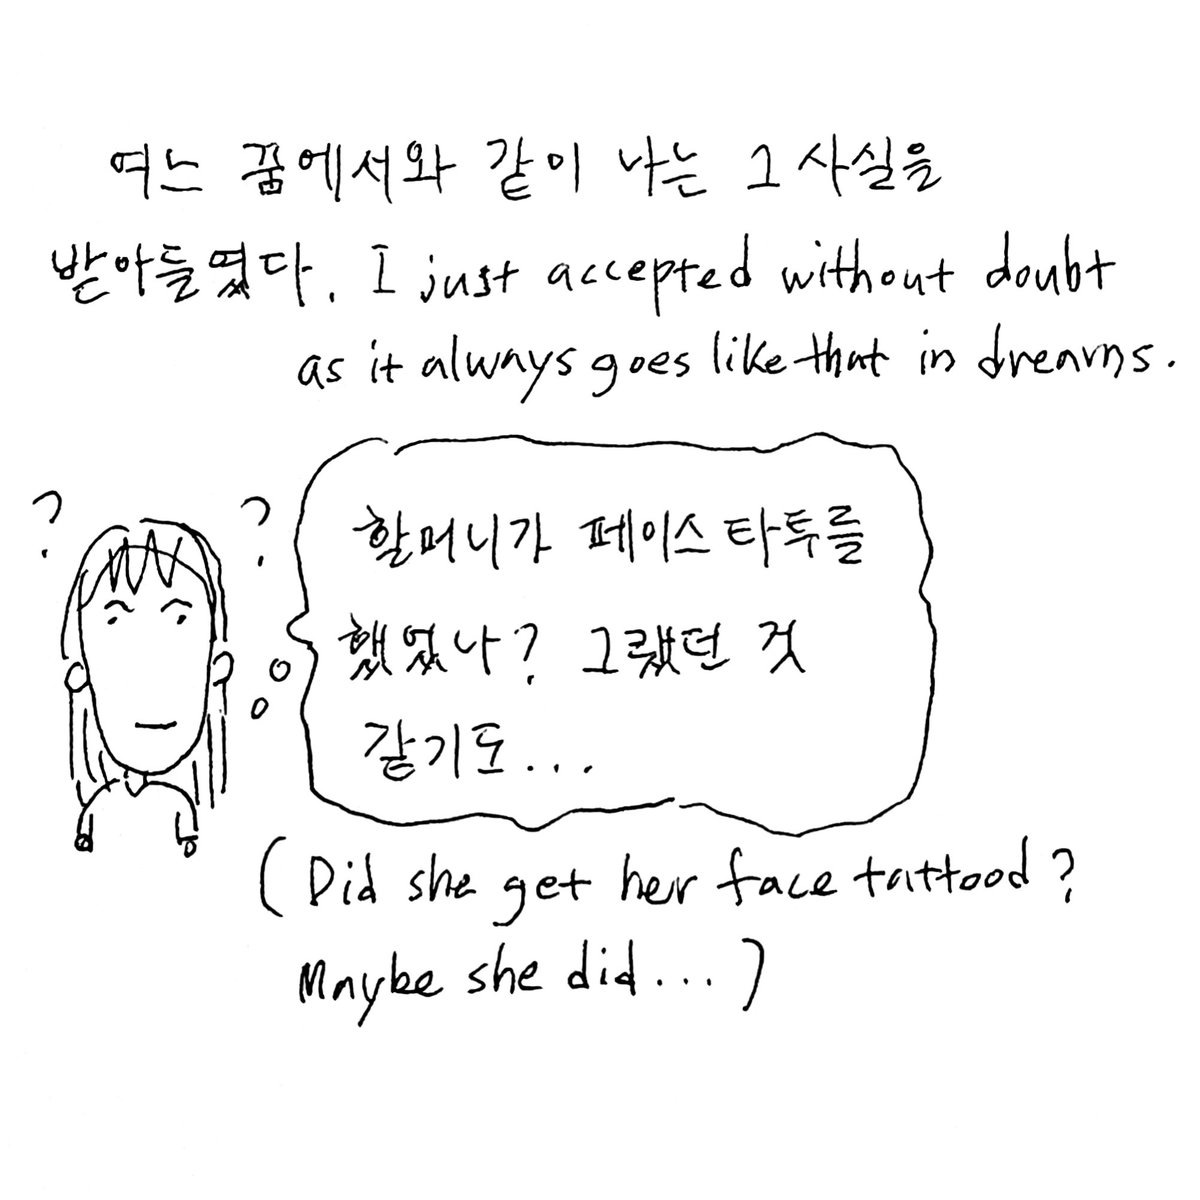 여느 꿈에서와 같이 나는 그 사실을
받아들였다. I just accepted without doubt
as it always goes like that in dreams.
? ?
할머니가 페이스 타투를
했었나? 그랬던 것
같기도...
(Did she get her face tattood?
Maybe she did...)